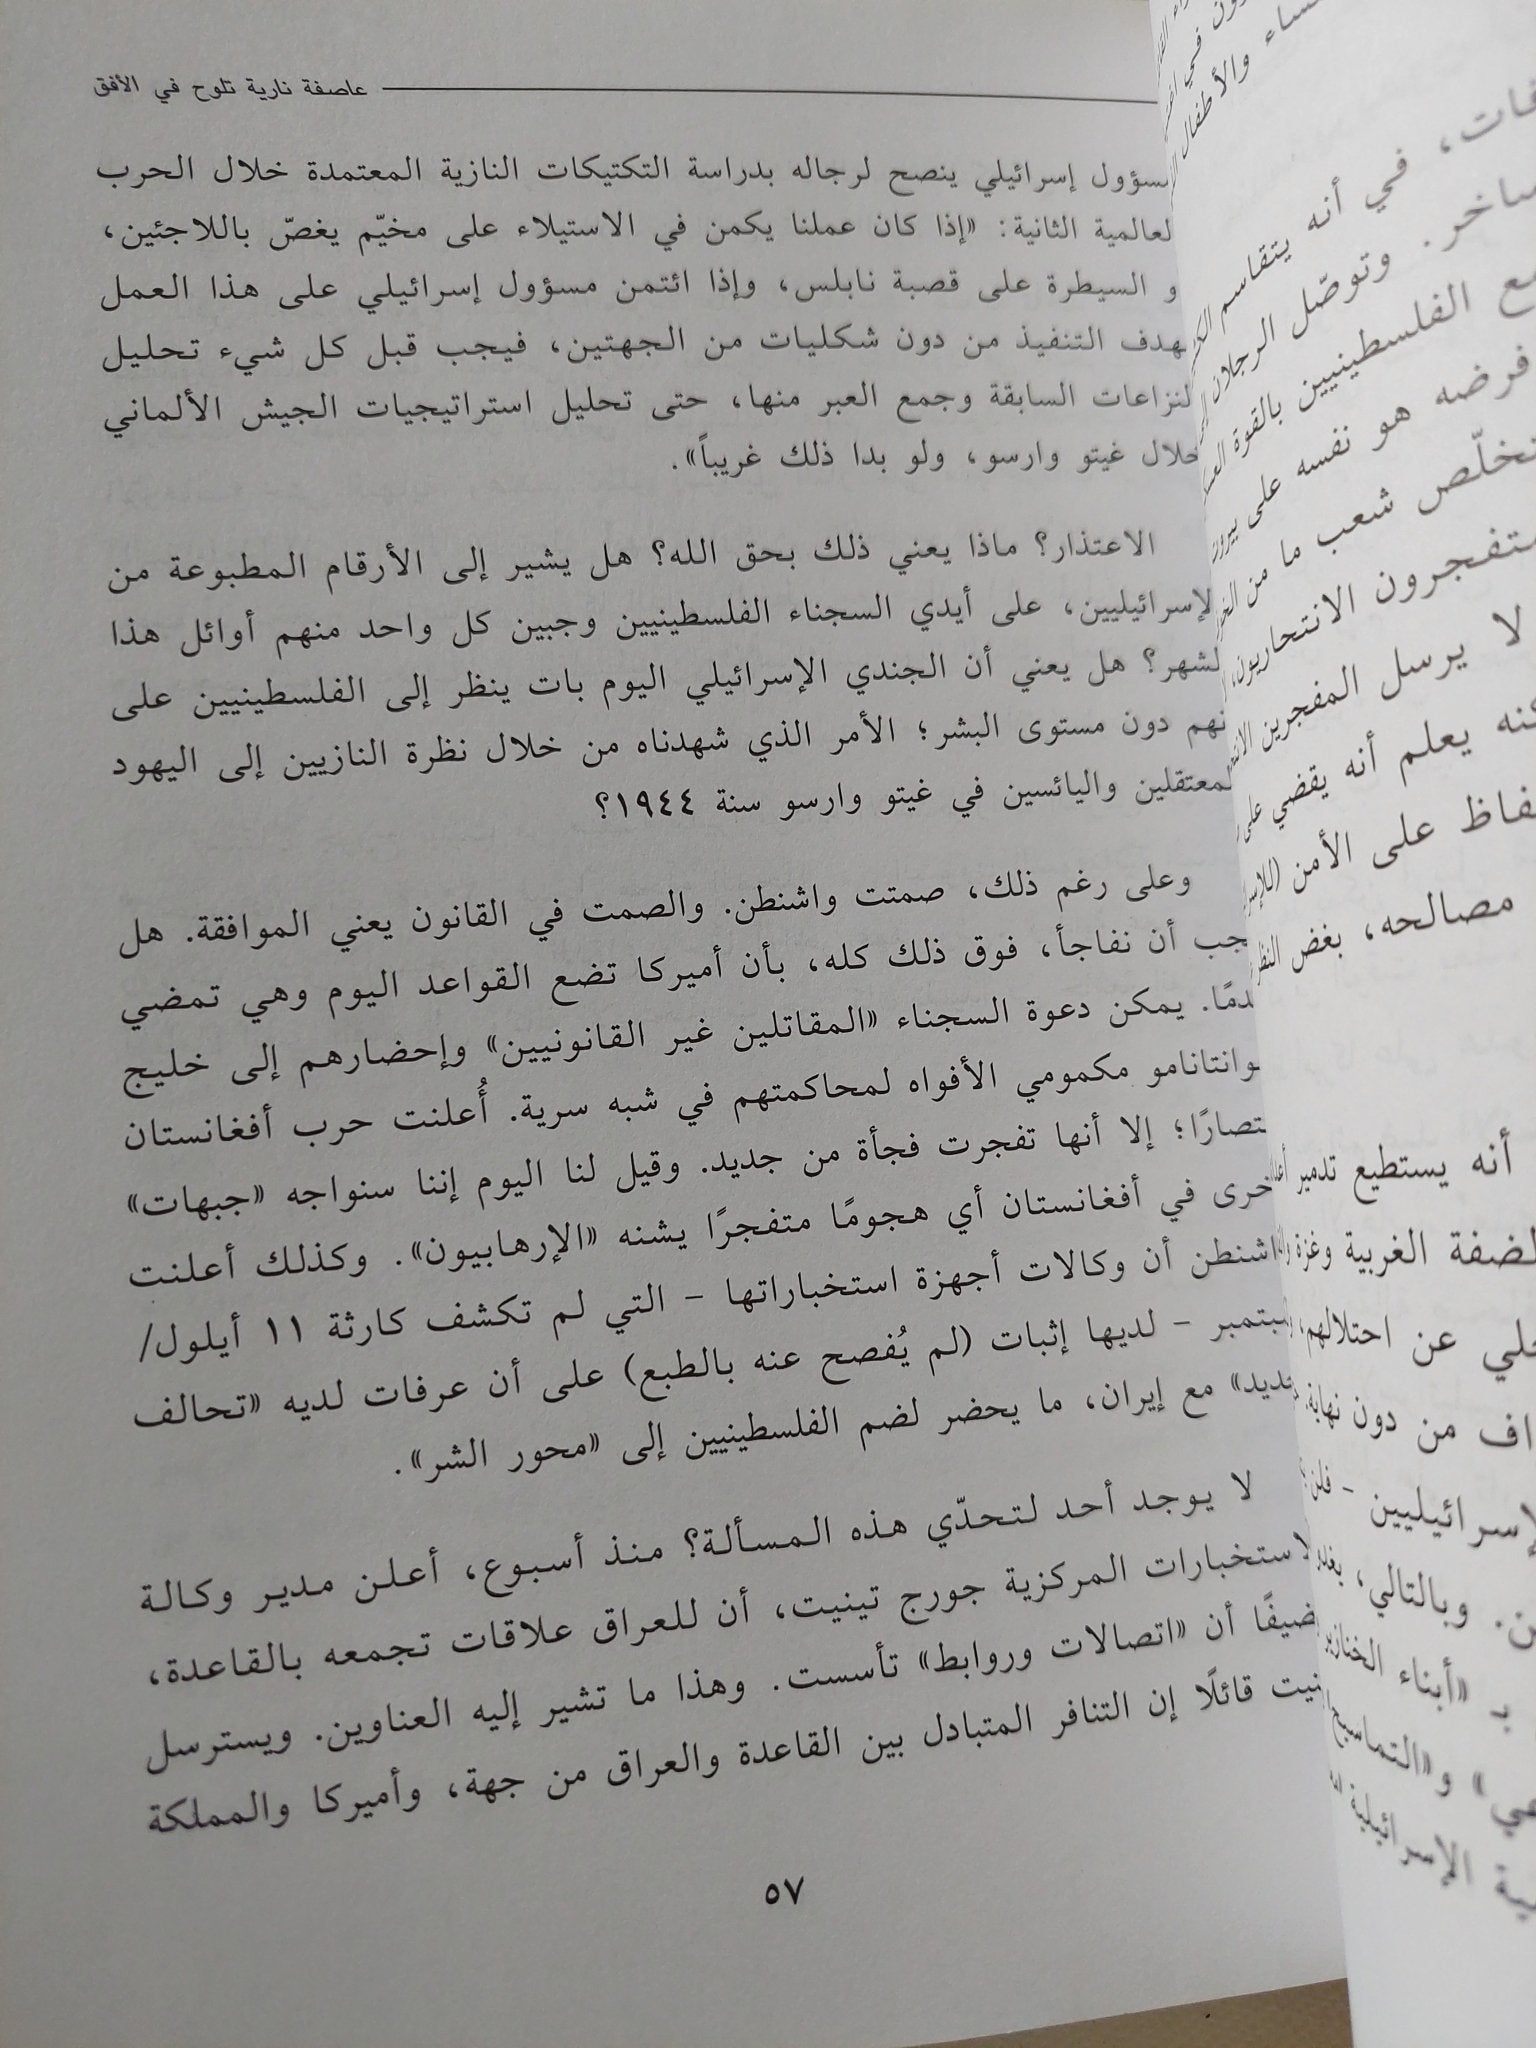 عاصفة نارية تلوح في الأفق
إسرائيلي ينصح لرجاله بدراسة التكتيكات النازية المعتمدة خلال الحرب
لعالمية الثانية: «إذا كان عملنا يكمن في الاستيلاء على مخيّم يغصّ باللاجئين،
و السيطرة على قصبة نابلس، وإذا ائتمن مسؤول إسرائيلي على هذا العمل
هدف التنفيذ من دون شكليات من الجهتين، فيجب قبل كل شيء تحليل
لنزاعات السابقة وجمع العبر منها، حتى تحليل استراتيجيات الجيش الألماني
خلال غيتو وارسو، ولو بدا ذلك غريباً».
الاعتذار؟ ماذا يعني ذلك بحق الله؟ هل يشير إلى الأرقام المطبوعة من
لإسرائيليين، على أيدي السجناء الفلسطينيين وجبين كل واحد منهم أوائل هذا
لشهر؟ هل يعني أن الجندي الإسرائيلي اليوم بات ينظر إلى الفلسطينيين على
نهم دون مستوى البشر؛ الأمر الذي شهدناه من خلال نظرة النازيين إلى اليهود
لمعتقلين واليائسين في غيتو وارسو سنة ١٩٤٤؟
وعلى رغم ذلك، صمتت واشنطن. والصمت في القانون يعني الموافقة. هل
جب أن نفاجأ، فوق ذلك كله، بأن أميركا تضع القواعد اليوم وهي تمضي
دمًا. يمكن دعوة السجناء «المقاتلين غير القانونيين» وإحضارهم إلى خليج
وانتانامو مكمومي الأفواه لمحاكمتهم في شبه سرية. أُعلنت حرب أفغانستان
تصارًا؛ إلا أنها تفجرت فجأة من جديد. وقيل لنا اليوم إننا سنواجه «جبهات»
خرى في أفغانستان أي هجومًا متفجرًا يشنه «الإرهابيون». وكذلك أعلنت
اشنطن أن وكالات أجهزة استخباراتها - التي لم تكشف كارثة ١١ أيلول/
بتمبر - لديها إثبات (لم يُفصح عنه بالطبع) على أن عرفات لديه «تحالف
جديد» مع إيران، ما يحضر لضم الفلسطينيين إلى «محور الشر».
لا يوجد أحد لتحدّي هذه المسألة؟ منذ أسبوع، أعلن مدير وكالة
لاستخبارات المركزية جورج تينيت، أن للعراق علاقات تجمعه بالقاعدة،
ضيفًا أن «اتصالات وروابط» تأسست. وهذا ما تشير إليه العناوين. ويسترسل
نيت قائلًا إن التنافر المتبادل بين القاعدة والعراق من جهة، وأميركا والمملكة
٥٧
والأطفال
في أنه يتقاسم
وتوصّل الرجلان
الفلسطينيين بالقوة
فرضه هو نفسه على
شعب ما من
الانتحاريون
لا يرسل المفجرين
يعلم أنه يقضي على
على الأمن
مصالحه، بغض النظر
أنه يستطيع تدمير
لضفة الغربية وغزة
عن احتلالهم،
من دون نهاية.
لإسرائيليين - فلن
وبالتالي،
بـ «أبناء الخنازير